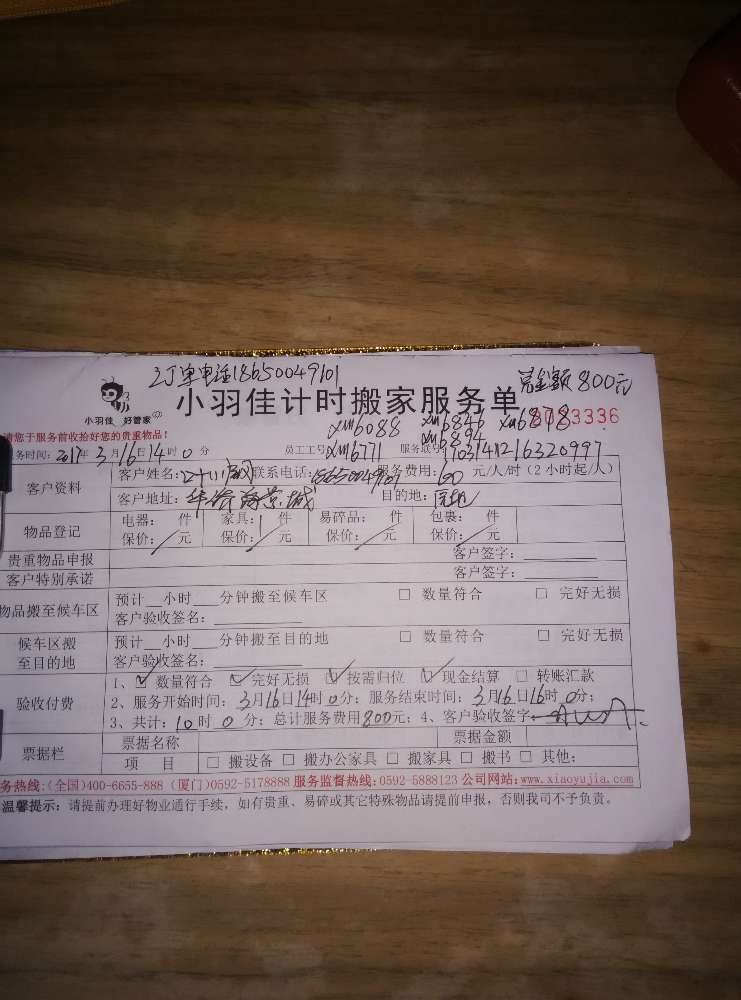 订单电话18650049101
完金额800元
小羽佳 好管家
小羽佳计时搬家服务单
xm6088 xm6846 xm6898
3336
请您于服务前收拾好您的贵重物品!
xm6894
务时间: 2017年3月16日14时0分 员工工号 xm6771 服务联号 1703141216320997
客户资料
客户姓名: 联系电话: 18650049101 服务费用: 60 元/人/时(2小时起/人)
客户地址: 目的地:
物品登记
电器: 件 家具: 件 易碎品: 件 包裹: 件
保价: 元 保价: 元 保价: 元 保价: 元
贵重物品申报 客户签字:
客户特别承诺 客户签字:
物品搬至候车区
预计 小时 分钟搬至候车区 □ 数量符合 □ 完好无损
客户验收签名:
候车区搬至目的地
预计 小时 分钟搬至目的地 □ 数量符合 □ 完好无损
客户验收签名:
验收付费
1、☑ 数量符合 ☑ 完好无损 ☑ 按需归位 ☑ 现金结算 □ 转账汇款
2、服务开始时间: 3月16日14时0分; 服务结束时间: 3月16日16时0分;
3、共计: 10时0分; 总计服务费用800元; 4、客户验收签字
票据栏
票据名称 票据金额
项 目 □ 搬设备 □ 搬办公家具 □ 搬家具 □ 搬书 □ 其他:
务热线:(全国)400-6655-888 (厦门)0592-5178888 服务监督热线:0592-5888123 公司网站:www.xiaoyujia.com
温馨提示: 请提前办理好物业通行手续, 如有贵重、易碎或其它特殊物品请提前申报, 否则我司不予负责。